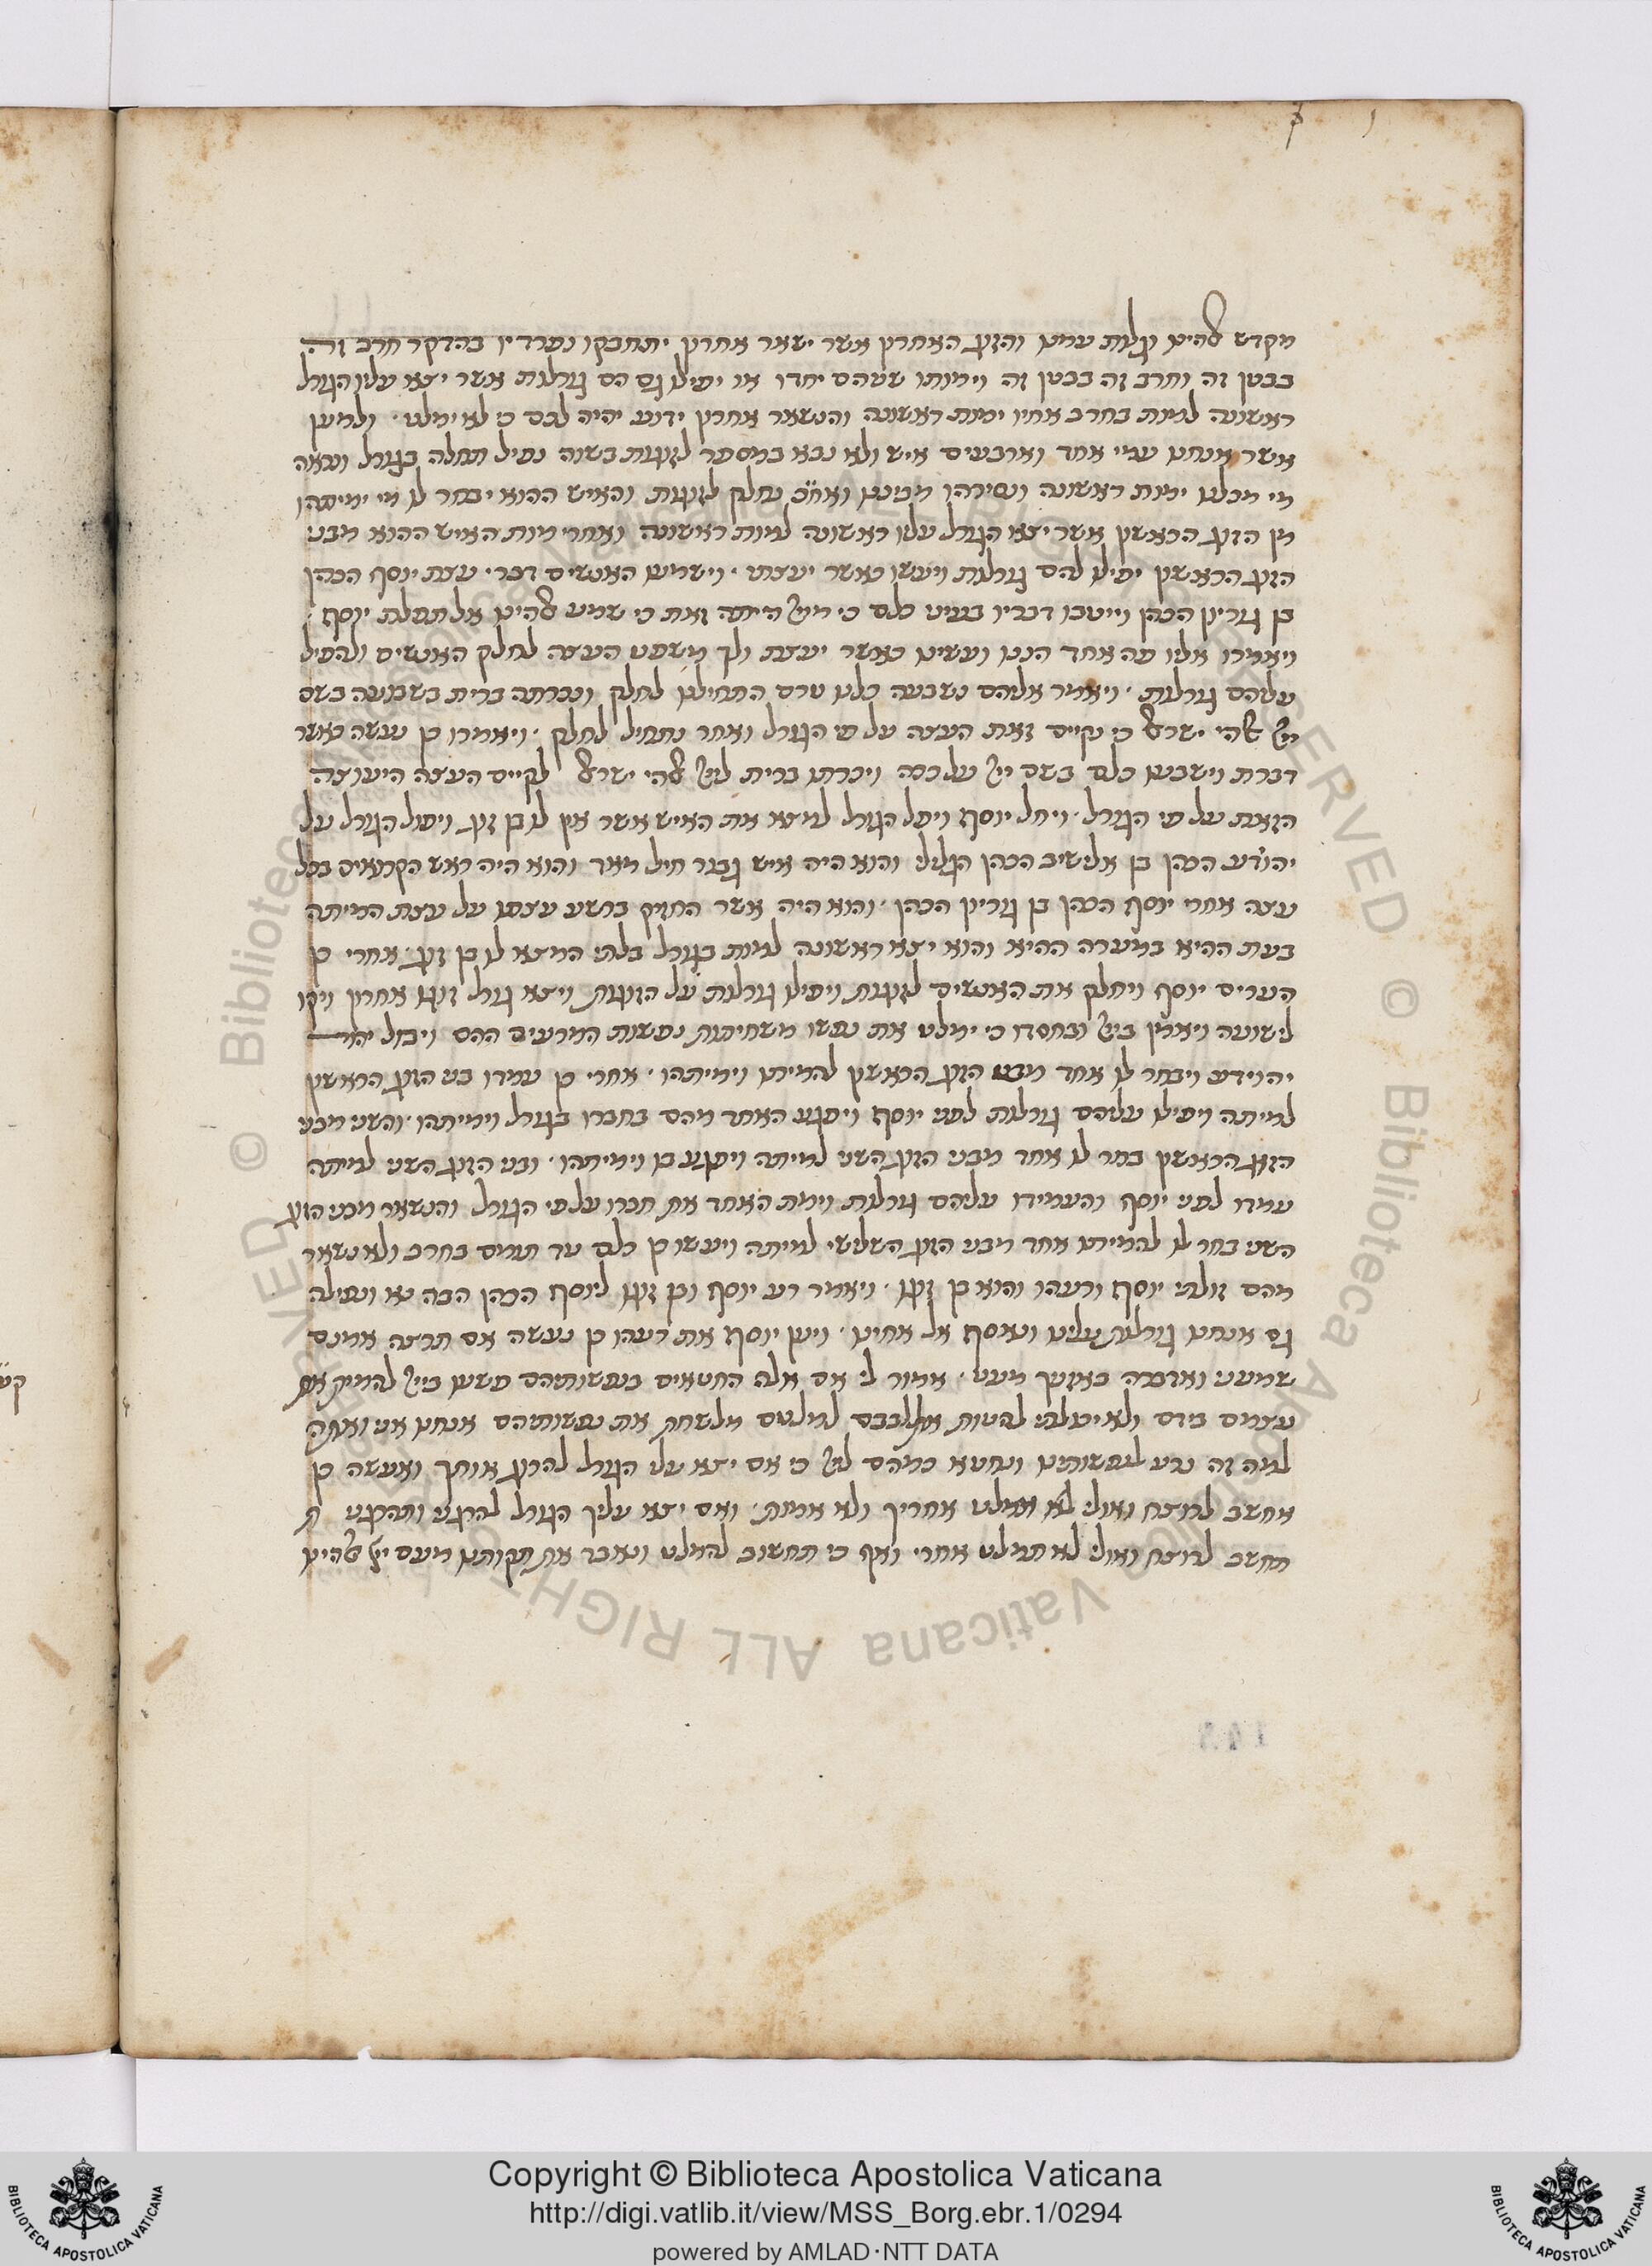 מקדש אלהינו וגלות עמינו והזוג האחרון אשר ישאר אחרון יתחבקו נפרדין בהדקר חרב זה
בבטן זה וחרב זה בבטן זה וימותו שניהם יחדו או יפילו גם הם גורלות אשר יצא עליו הגורל
ראשונה למות בחרב אחיו ימות ראשונה והנשאר אחרון ידוע יהיה לכם כי לא ימלט . ולמען
אשר אנחנו עמי אחד וארבעים איש ולא נבא במספר לזוגות בשוה נפיל תחלה בגורל ונראה
מי מכלנו ימות ראשונה ונסירהו מבינינו ואח״כ נחלק לזוגות והאיש ההוא יבחר לו מי ימיתהו
מן הזוג הראשון אשר יצא הגורל עליו ראשונה למות ראשונה ואחרי מות האיש ההוא מבני
הזוג הראשון יפילו להם גורלות ויעשו כאשר יעצתי . וישמעו האנשים דבר . עצת יוסף הכהן
בן גוריון הכהן וייטבו דבריו בעיני כלם כי מייי היתה זאת כי שמע אלהינו אל תפלת יוסף :
ויאמרו אליו פה אחד הננו ועשינו כאשר יעצת ולך משפט העצה לחלק האנשים ולהפיל
עליהם גורלות . ויאמר אליהם נשבעה כלנו טרם התחילנו לחלק ונכרתה ברית בשבועה בשם
ייי אלהי ישראל כי נקיים זאת העצה על פי הגורל ואחר נתחיל לחלק . ויאמרו כן נעשה כאשר
דברת וישבעו כלם בשם ייי על ככה ויכרתו ברית לייי אלהי ישראל לקיים העצה היעוצה
הזאת על פי הגורל . ויחל יוסף ויפל הגורל למצא את האיש אשר אין לו בן זוג ויפול הגורל על
יהוידע הכהן בן אלישיב הכהן הגלילי והוא היה איש גבור חיל מאד והוא היה ראש הקרואים בכל
עצה אחרי יוסף הכהן בן גוריון הכהן . והוא היה אשר החזיק ברשע עצתו על עצת המיתה
בעת ההיא במערה ההיא והוא יצא ראשונה למות בגורל בלתי המצא לו בן זוג אחרי כן
הערים יוסף ויחלק את האנשים לזוגות ויפילו גורלות על הזוגות ויצא גורל זוגו אחרון ויקו
לישועה ויאמין בייי ובחסדו כי ימלט את נפשו משחיתות נפשות המרעים ההם ויבדל יהוי
יהוידע ויבחר לו אחד מבני הזוג הראשון להמיתו וימיתהו . אחרי כן עמדו בני הזוג הראשון
למיתה ויפילו עליהם גורלות לפני יוסף ויפגע האחד מהם בחברו בגורל וימיתהו . והשני מבני
הזוג הראשון בחר לו אחד מבני הזוג השני למיתה ויפגע בו וימיתהו . ובני הזוג השני למיתה
עמדו לפני יוסף והעמידו עליהם גורלות וימת האחד את חברו על פי הגורל והנשאר מבני הזוג
השני בחר לו להמיתו אחד מבני הזוג השלישי למיתה ויעשו כן כלם עד תומם בחרב ולא נשאר
מהם זולתי יוסף ורעהו והוא בן זוגו . ויאמר רע יוסף ובן זוגו ליוסף הכהן הבה נא ונפילה
גם אנחנו גורלות עלינו ונאסף אל אחינו . ויען יוסף את רעהו כן נעשה אם תרצה אמנם
שמעני ואדברה באזניך מעט . אמור לי אם אלה החטאים בנפשותיהם פשעו בייי להמית את
עצמם בידם ולא יכולתי להטות את לבבם למלטם מלשחת את נפשותיהם אנחנו אני ואתה
למה זה נרע לנפשותינו ונחטא כמוהם לייי כי אם יצא עלי הגורל להרוג אותך ואעשה כן
אחשב לרוצח ואולי לא אמלט אחריך ולא אמות . ואם יצא עליך הגורל להרגני ותהרגני ת
תחשב לרוצח ואולי לא תמלט אחרי ואף כי תחשוב להמלט ונאבד את תקותנו מעם ייי אלהינו
Copyright © Biblioteca Apostolica Vaticana
http://digi.vatlib.it/view/MSS_Borg.ebr.1/0294
powered by AMLAD·NTT DATA